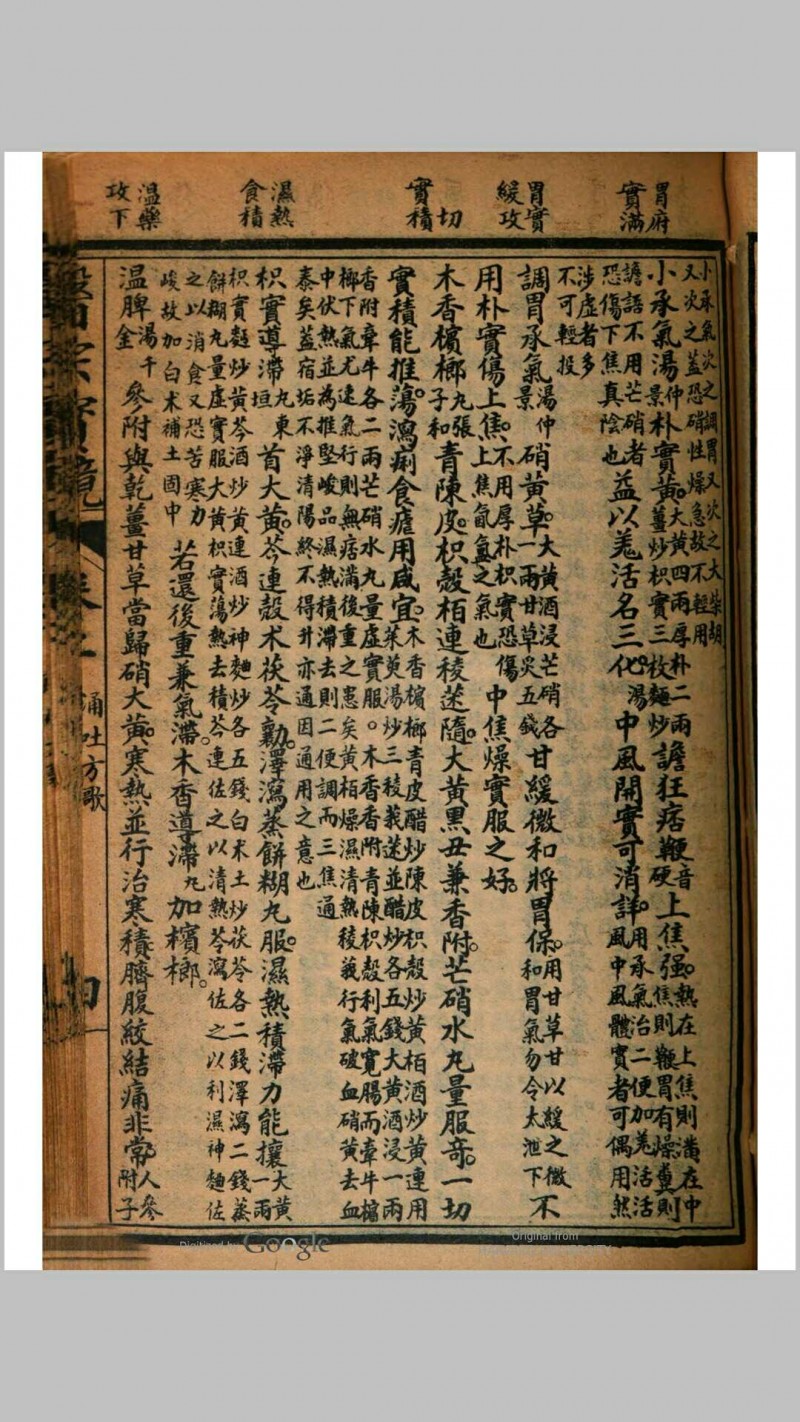 胃府
實滿
胃實
緩攻
一切
實積
濕熱
食積
溫藥
攻下
小承氣次之調胃又次之大柴胡
又次之蓋恐硝性燥急故不輕用
小承氣湯仲景朴實黃薑炒枳實三枚麵炒大黃四兩厚朴二兩譫狂痞鞕音硬上焦強熱在上焦則滿在中焦則鞕胃有燥糞則
譫語不用芒硝者恐傷下焦真陰也益以羗活名三化湯中風閉實可消詳用承氣治二便加羗活活風中風體實者可偶用然
涉虛者多
不可輕投
調胃承氣湯仲景硝黃草大黃酒浸芒硝各一兩甘草炙五錢甘緩微和將胃保用甘草甘以緩之微和胃氣勿令太泄下不
用朴實傷上焦不用厚朴枳實恐傷上焦氤氳之氣也中焦燥實服之好
木香檳榔丸張子和青陳皮枳殼柏連稜莪隨大黃黑丑兼香附芒硝水丸量服奇一切
實積能推蕩瀉痢食瘧用咸宜木香檳榔青皮醋炒陳皮枳殼炒黃柏酒炒黃連用茱萸湯炒三稜莪莁並醋炒各五錢大黃酒浸一兩
香附牽牛各二兩芒硝水丸量虛實服。木香香附青陳枳殼利氣寬腸而牽牛檳
榔下氣尤速氣行則無痞滿後重之患矣黃柏燥濕清熱稜莪行氣破血硝黃去血
中伏熱並為推堅峻品濕熱積滯去則二便調而三焦通
泰矣蓋宿垢不淨清陽終不得升亦通因通用之意也
枳實導滯丸東垣首大黃芩連麯朮茯苓勷澤瀉蒸餅糊丸服濕熱積滯力能攘大黃一兩
枳實麩炒黃芩酒炒黃連酒炒神麯炒各五錢白朮土炒茯苓各二錢澤瀉二錢蒸
餅糊丸量虛實服大黃枳實蕩熱去積芩連佐之以清熱苓瀉佐之以利濕神麯佐
之以消食又恐苦寒力
峻故加白朮補土固中若還後重兼氣滯木香導滯丸加檳榔
溫脾湯千金參附與乾薑甘草當歸硝大黃寒熱並行治寒積臍腹絞結痛非常人參附子
卷之
涌吐方歌
Digitized by Google
Original from